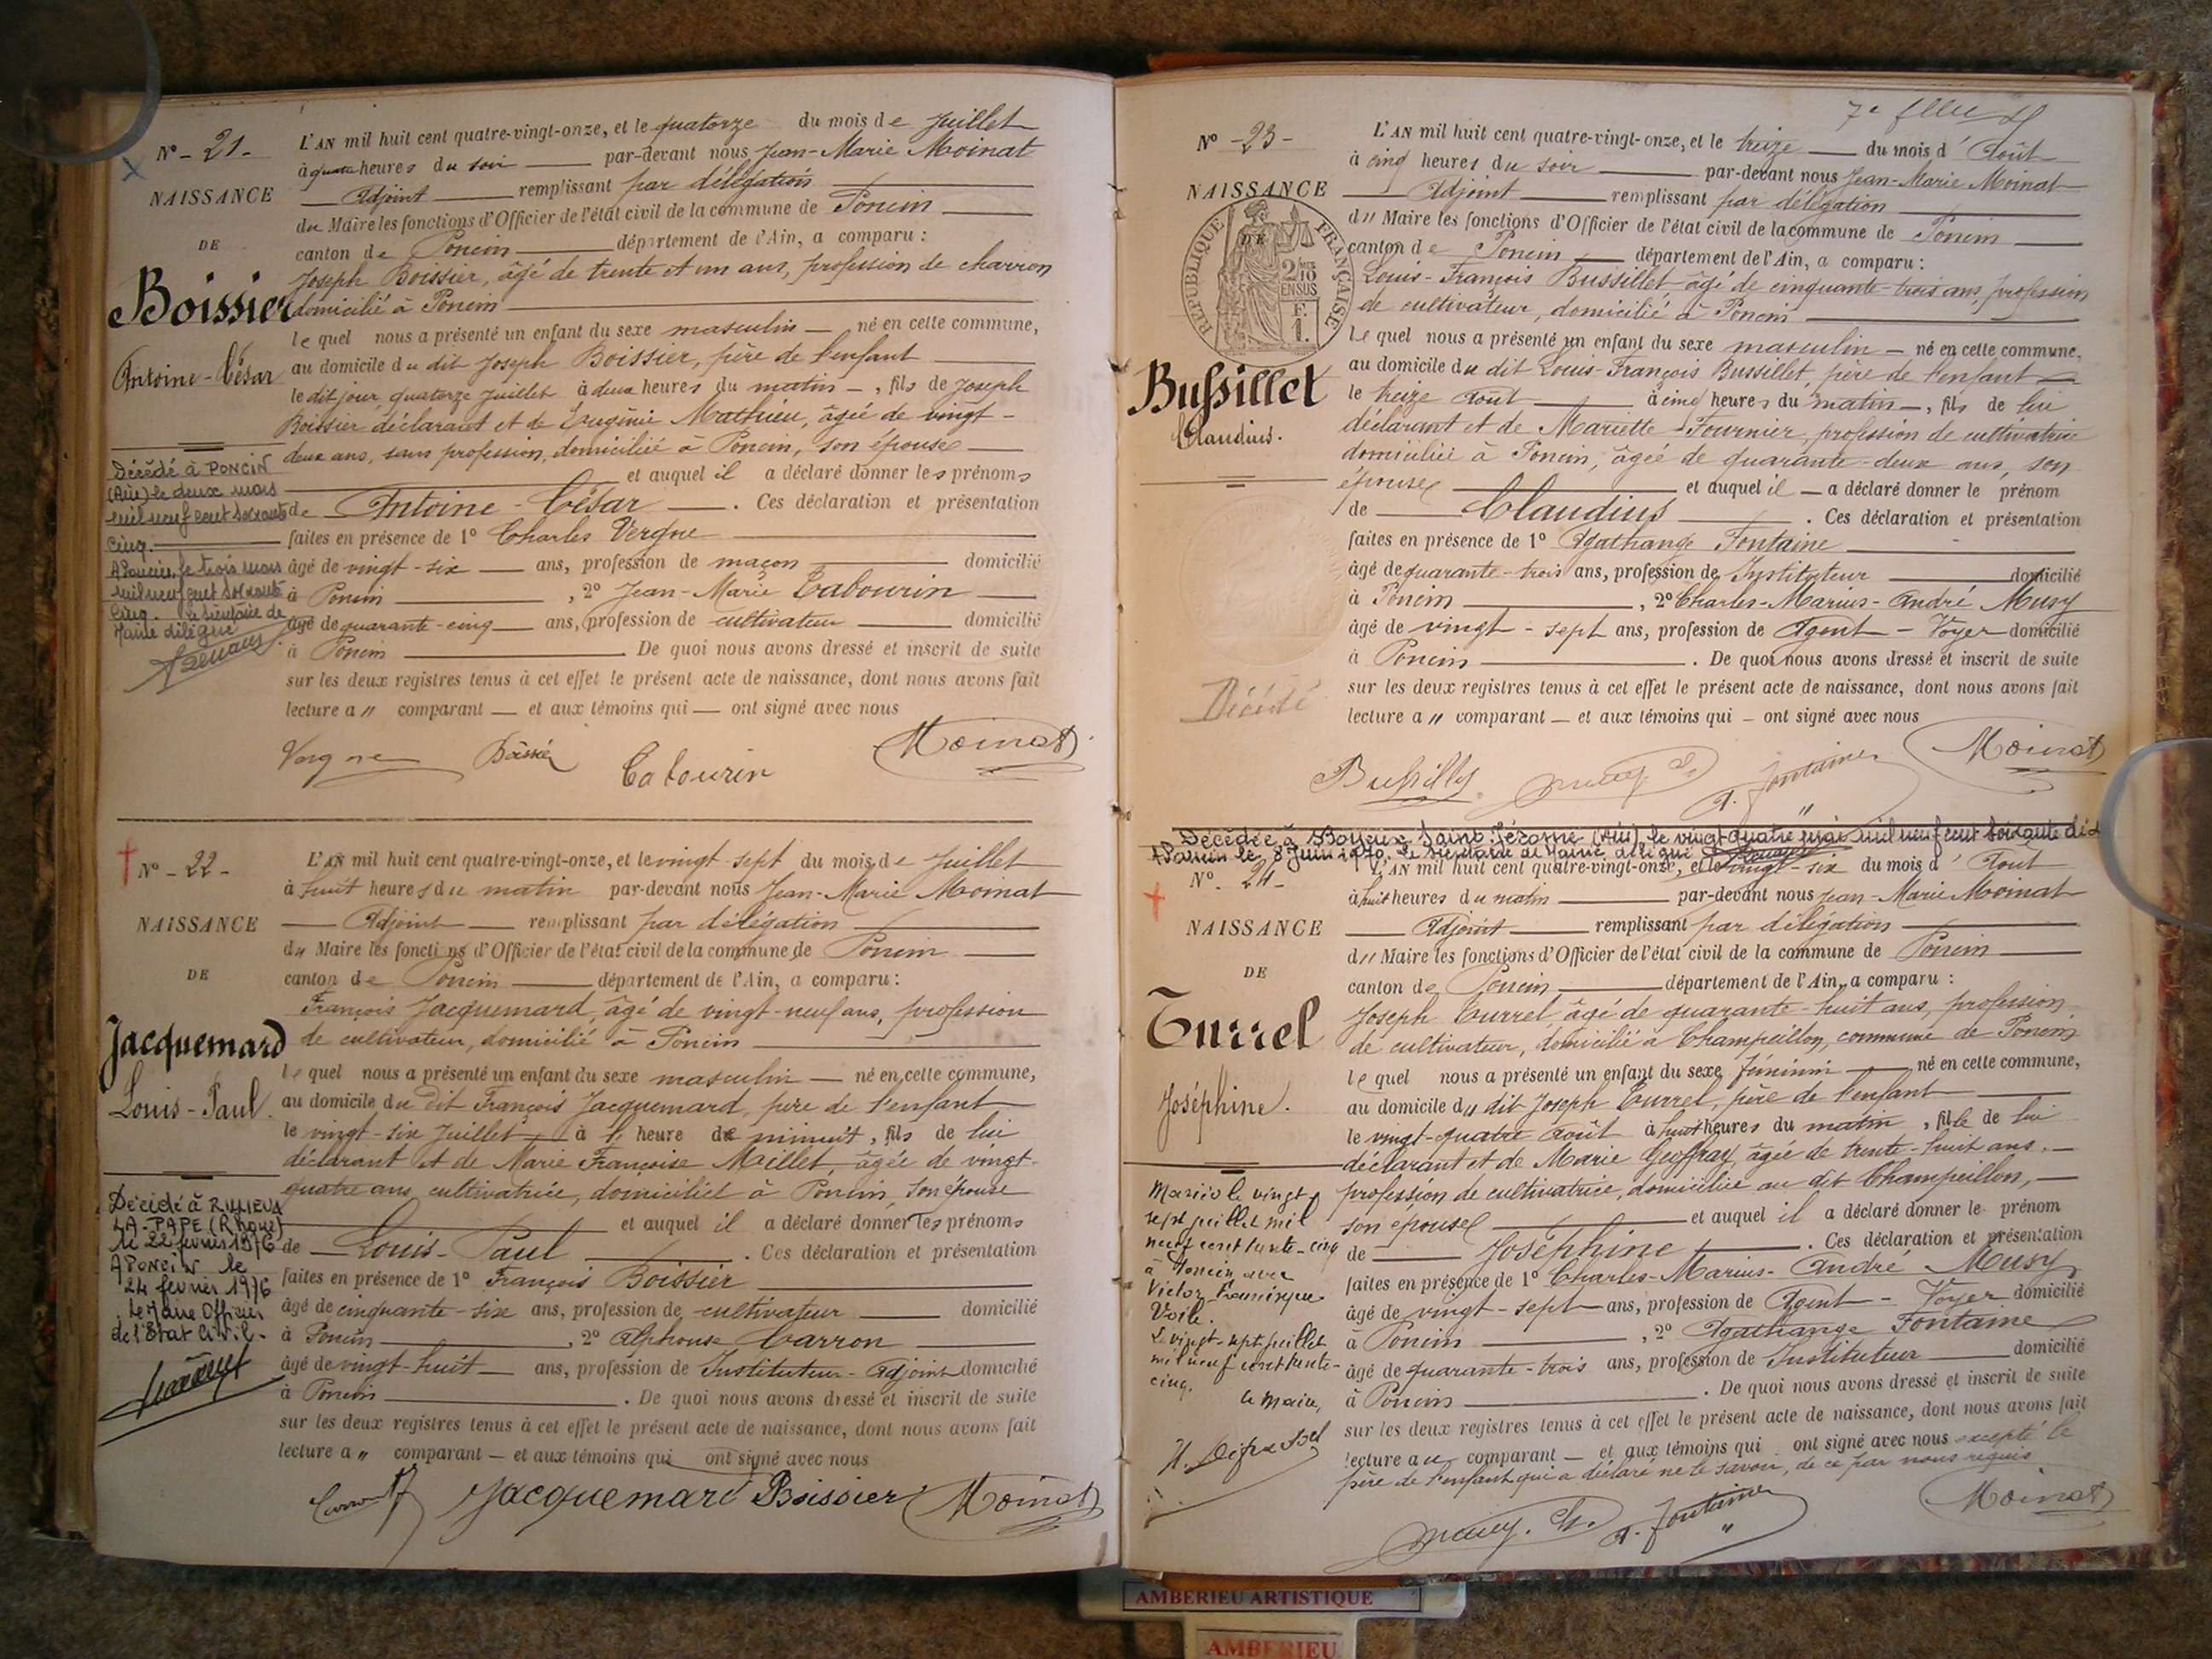 N° - 21 -
NAISSANCE
DE
Boissier
Antoine-César
Décédé à PONCIN
(Ain) le deux mars
mil neuf cent soixante
cinq.
A Poncin, le trois mars
mil neuf cent soixante
cinq. Le Secrétaire de
Mairie délégué
L'AN mil huit cent quatre-vingt-onze, et le quatorze du mois de Juillet
à quatre heures du soir par-devant nous Jean-Marie Moinat
Adjoint remplissant par délégation
du Maire les fonctions d'Officier de l'état civil de la commune de Poncin
canton de Poncin département de l'Ain, a comparu :
Joseph Boissier, âgé de trente et un ans, profession de charron
domicilié à Poncin
lequel nous a présenté un enfant du sexe masculin - né en cette commune,
au domicile du dit Joseph Boissier, père de l'enfant
le dit jour quatorze Juillet à deux heures du matin -, fils de Joseph
Boissier déclarant et de Eugénie Mathieu, âgée de vingt-
deux ans, sans profession, domiciliée à Poncin, son épouse
et auquel il a déclaré donner les prénoms
de Antoine - César . Ces déclaration et présentation
faites en présence de 1° Charles Vergne
âgé de vingt-six ans, profession de maçon domicilié
à Poncin , 2° Jean-Marie Tabourin
âgé de quarante-cinq ans, profession de cultivateur domicilié
à Poncin . De quoi nous avons dressé et inscrit de suite
sur les deux registres tenus à cet effet le présent acte de naissance, dont nous avons fait
lecture a " comparant - et aux témoins qui - ont signé avec nous
Vergne Boissier Tabourin Moinat
N° - 22 -
NAISSANCE
DE
Jacquemard
Louis-Paul.
Décédé à RILLIEUX
LA-PAPE (Rhône)
le 22 février 1976
A PONCIN le
24 février 1976
Le Maire Officier
de l'Etat Civil-
L'AN mil huit cent quatre-vingt-onze, et le vingt-sept du mois de Juillet
à huit heures du matin par-devant nous Jean-Marie Moinat
Adjoint remplissant par délégation
du Maire les fonctions d'Officier de l'état civil de la commune de Poncin
canton de Poncin département de l'Ain, a comparu :
François Jacquemard, âgé de vingt-neuf ans, profession
de cultivateur, domicilié à Poncin
lequel nous a présenté un enfant du sexe masculin - né en cette commune,
au domicile du dit François Jacquemard, père de l'enfant
le vingt-six Juillet à l' heure de minuit, fils de lui
déclarant et de Marie Françoise Millet, âgée de vingt-
quatre ans cultivatrice, domiciliée à Poncin, son épouse
et auquel il a déclaré donner les prénoms
de Louis-Paul . Ces déclaration et présentation
faites en présence de 1° François Boissier
âgé de cinquante-six ans, profession de cultivateur domicilié
à Poncin , 2° Alphonse Carron
âgé de vingt-huit ans, profession de Instituteur-Adjoint domicilié
à Poncin . De quoi nous avons dressé et inscrit de suite
sur les deux registres tenus à cet effet le présent acte de naissance, dont nous avons fait
lecture a " comparant - et aux témoins qui ont signé avec nous
Carron Jacquemard Boissier Moinat
N° - 23 -
NAISSANCE
DE
RÉPUBLIQUE FRANÇAISE
2/10
EN SUS
F.
1.
Bussillet
Claudius.
Décédé
L'AN mil huit cent quatre-vingt-onze, et le treize du mois d' Août
à cinq heures du soir par-devant nous Jean-Marie Moinat
Adjoint remplissant par délégation
d" Maire les fonctions d'Officier de l'état civil de la commune de Poncin
canton de Poncin département de l'Ain, a comparu :
Louis-François Bussillet âgé de cinquante-trois ans, profession
de cultivateur, domicilié à Poncin
Lequel nous a présenté un enfant du sexe masculin - né en cette commune,
au domicile du dit Louis-François Bussillet, père de l'enfant
le treize Août à cinq heures du matin -, fils de lui
déclarant et de Mariette Fournier, profession de cultivatrice
domiciliée à Poncin, âgée de quarante-deux ans, son
épouse et auquel il - a déclaré donner le prénom
de Claudius . Ces déclaration et présentation
faites en présence de 1° Agathange Fontaine
âgé de quarante-trois ans, profession de Instituteur domicilié
à Poncin , 2° Charles-Marius-André Musy
âgé de vingt-sept ans, profession de Agent-Voyer domicilié
à Poncin . De quoi nous avons dressé et inscrit de suite
sur les deux registres tenus à cet effet le présent acte de naissance, dont nous avons fait
lecture a " comparant - et aux témoins qui - ont signé avec nous
A. Fontaine Moinat
Décédée à Boyeux-Saint-Jérome (Ain) le vingt quatre mai mil neuf cent soixante dix
A Poncin le 8 Juin 1970. Le Secrétaire de Mairie délégué
N° - 24 -
NAISSANCE
DE
Turrel
Joséphine.
Marié le vingt
sept juillet mil
neuf cent trente-cinq
à Poncin avec
Victor Françisque
Voile.
Le vingt-sept juillet
mil neuf cent trente-
cinq.
Le Maire,
L'AN mil huit cent quatre-vingt-onze, et le vingt-six du mois d' Août
à huit heures du matin par-devant nous Jean-Marie Moinat
Adjoint remplissant par délégation
d" Maire les fonctions d'Officier de l'état civil de la commune de Poncin
canton de Poncin département de l'Ain, a comparu :
Joseph Turrel, âgé de quarante-huit ans, profession
de cultivateur, domicilié à Champeillon, commune de Poncin
lequel nous a présenté un enfant du sexe féminin né en cette commune,
au domicile du dit Joseph Turrel, père de l'enfant
le vingt-quatre Août à huit heures du matin, fille de lui
déclarant et de Marie Geoffray, âgée de trente-huit ans. -
profession de cultivatrice, domiciliée au dit Champeillon, -
son épouse et auquel il a déclaré donner le prénom
de Joséphine . Ces déclaration et présentation
faites en présence de 1° Charles-Marius-André Musy
âgé de vingt-sept ans, profession de Agent-Voyer domicilié
à Poncin , 2° Agathange Fontaine
âgé de quarante-trois ans, profession de Instituteur domicilié
à Poncin . De quoi nous avons dressé et inscrit de suite
sur les deux registres tenus à cet effet le présent acte de naissance, dont nous avons fait
lecture au comparant - et aux témoins qui ont signé avec nous excepté le
père de l'enfant qui a déclaré ne le savoir, de ce par nous requis
A. Fontaine Moinat
AMBERIEU ARTISTIQUE
AMBERIEU